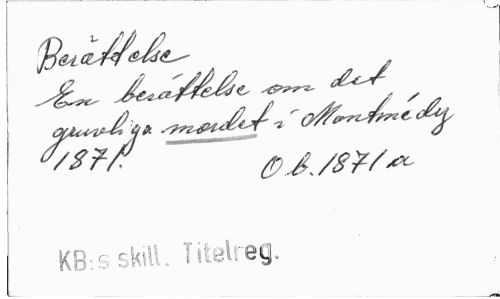 Berättelse
En berättelse om det
gruvliga mordet i Montmédy
1871. O b. 1871 a
KB:s skill. Titelreg.